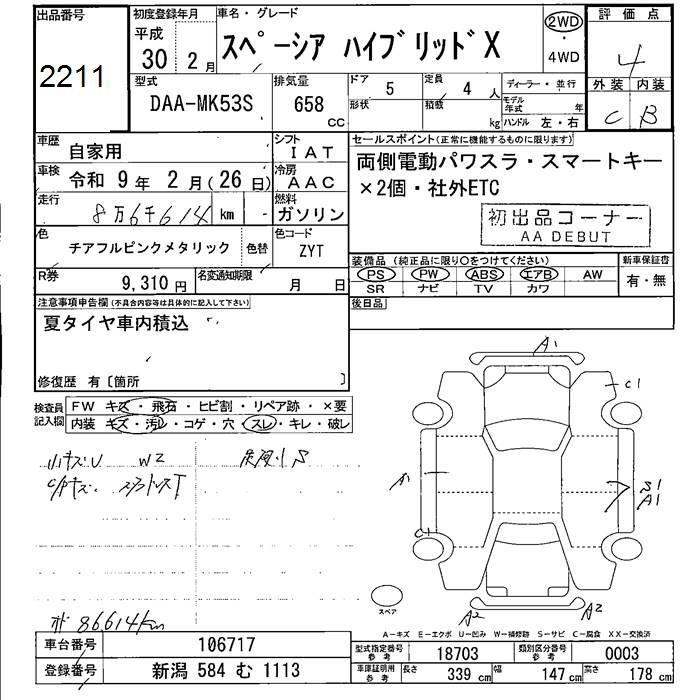 出品番号
2211
初度登録年月
平成
30 2月
車名・グレード
スペーシア ハイブリッドX
2WD
・
4WD
評価点
4
外装 内装
C B
型式
DAA-MK53S
排気量
658
cc
ドア 5
定員 4 人
形状
積載 kg
ディーラー・並行
モデル年式 年
ハンドル 左・右
車歴
自家用
シフト
IAT
車検
令和 9年 2月(26日)
冷房
AAC
走行
8万6千614 km
燃料
ガソリン
色
チアフルピンクメタリック
色替
色コード
ZYT
R券
9,310円
名変通知期限
月 日
セールスポイント(正常に機能するものに限ります)
両側電動パワスラ・スマートキー
×2個・社外ETC
初出品コーナー
AA DEBUT
装備品(純正品に限り○をつけてください)
PS PW ABS エアB AW
SR ナビ TV カワ
新車保証書
有・無
後日品
注意事項申告欄(不具合内容等は具体的に記入して下さい)
夏タイヤ車内積込
修復歴 有〔箇所 〕
検査員
記入欄
FW キズ・飛石・ヒビ割・リペア跡・×要
内装 キズ・汚れ・コゲ・穴・スレ・キレ・破レ
小キズU W2
86614km
A1
C1
A1
S1
A1
C1
A2 A2
スペア
A-キズ E-エクボ U-凹み W-補修跡 S-サビ C-腐食 XX-交換済
車台番号
106717
登録番号
新潟 584 む 1113
型式指定番号
参考
18703
類別区分番号
参考
0003
車庫証明用
参考
長さ 339 cm
幅 147 cm
高さ 178 cm